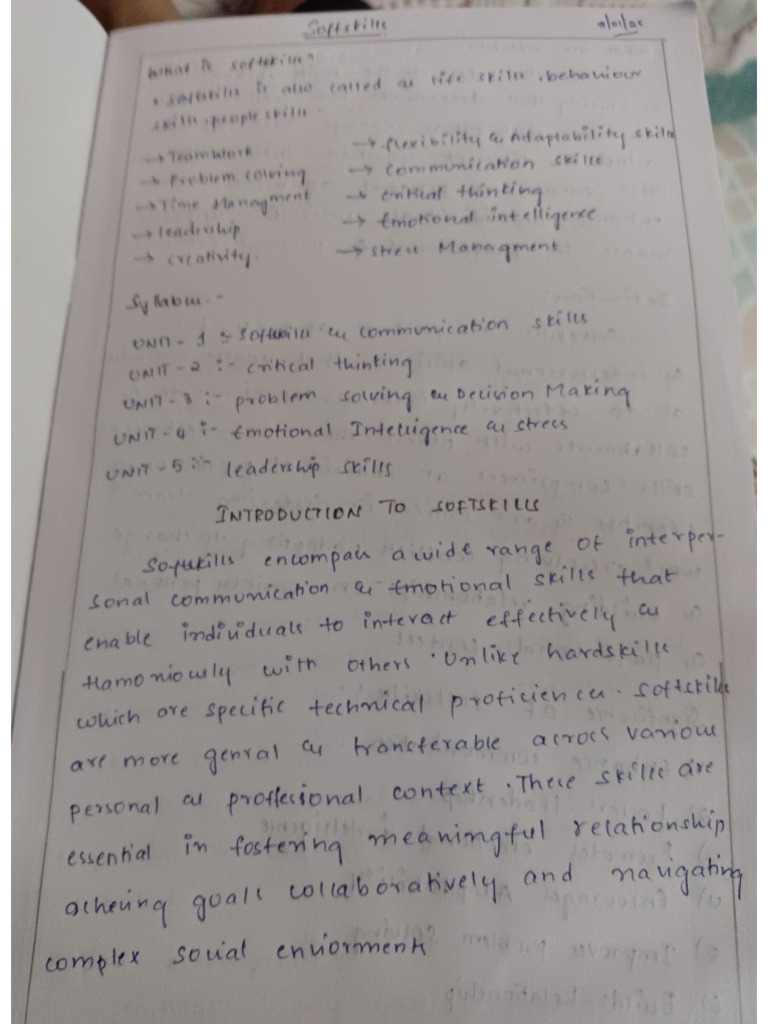 Softskills
What is softskills?
• softskills is also called as life skills, behaviour
skills, people skills.
→ Teamwork → flexibility & Adaptability skills
→ Problem solving → communication skills
→ Time Managment → critical thinking
→ leadership → Emotional intelligence
→ creativity. → stress Managment
Syllabus :-
UNIT - 1 :- Softskills & communication skills
UNIT - 2 :- critical thinking
UNIT - 3 :- problem solving & Decision Making
UNIT - 4 :- Emotional Intelligence & stress
UNIT - 5 :- leadership skills
INTRODUCTION TO SOFTSKILLS
Softskills encompass a wide range of interper-
sonal communication & Emotional skills that
enable individuals to interact effectively &
Hamoniously with others. Unlike hardskills
which are specific technical proficiences. Softskills
are more genral & transferable across various
personal & proffessional context. These skills are
essential in fostering meaningful relationship
acheving goals collaboratively and navigating
complex social enviorments